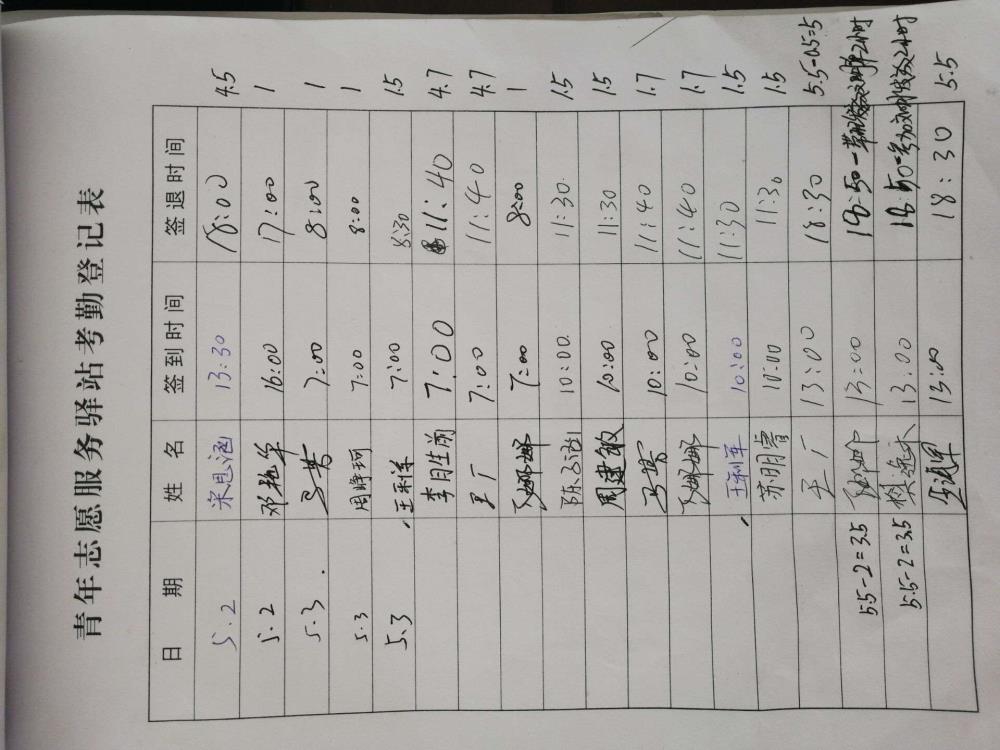 青年志愿服务驿站考勤登记表
日 期 姓 名 签到时间 签退时间
5.2 13:30 18:00 4.5
5.2 邓艳华 16:00 17:00 1
5.3 马芳 7:00 8:00 1
5.3 周峥珂 7:00 8:00 1
5.3 王利军 7:00 8:30 1.5
李月生 7:00 11:40 4.7
王广 7:00 11:40 4.7
娜娜 7:00 8:00 1
陈 10:00 11:30 1.5
周建敏 10:00 11:30 1.5
马芳 10:00 11:40 1.7
娜娜 10:00 11:40 1.7
王利军 10:00 11:30 1.5
苏明睿 10:00 11:30 1.5
王广 13:00 18:30 5.5-0.5=5
5.5-2=3.5 13:00 18:50 2小时
5.5-2=3.5 13:00 18:50 2小时
13:00 18:30 5.5